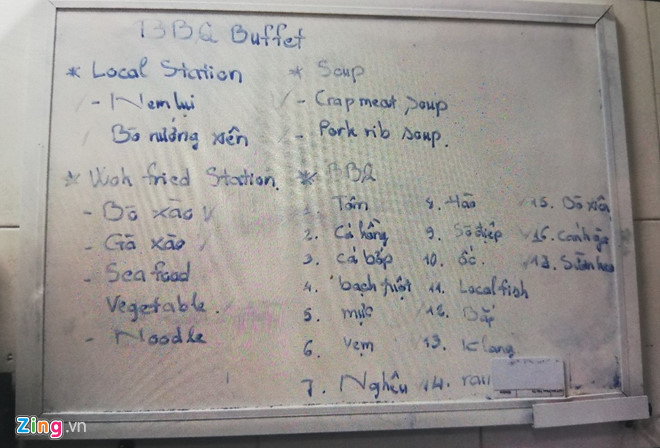 BBQ Buffet
* Local Station
- Nem lụi
Bò nướng xiên
* Wok fried Station
- Bò xào
- Gà xào
- Sea food
Vegetable.
- Noodle
* Soup
- Crap meat soup
- Pork rib soup.
* BBQ
1. Tôm
2. Cá hồng
3. Cá bớp
4. bạch tuột
5. mực
6. Vẹm
7. Nghêu
8. Hàu
9. Sò điệp
10. ốc.
11. Local fish
12. Bắp
13. K lang
14. rau
15. Bò xiên
16. Cánh gà
17. Sườn heo
Zing.vn